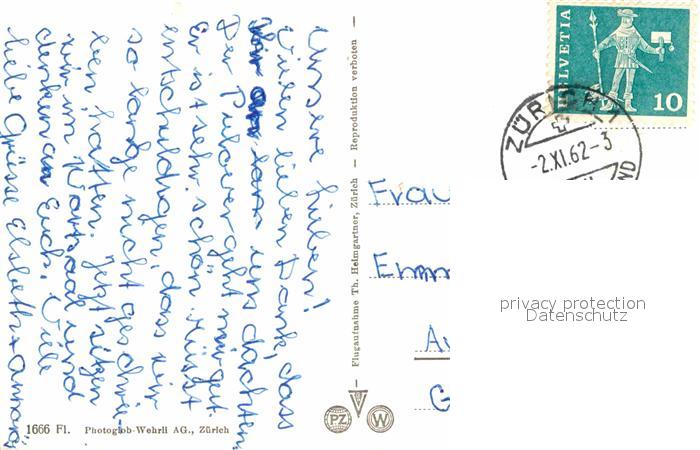 Unsere Lieben!
Vielen lieben Dank, dass
an uns dachten.
Der Pulover geht mir gut.
Er ist sehr schön. Müsst
entschuldigen, dass wir
so lange nicht geschrie-
ben hatten. Jetzt sitzen
wir im Wartsaal und
denken an Euch. Viele
liebe Grüsse Elsbeth +
1666 Fl. Photoglob-Wehrli AG., Zürich
— Flugaufnahme Th. Heimgartner, Zürich — Reproduktion verboten —
PZ W
HELVETIA
10
ZÜRICH 1
-2.XI.62-3
Frau
Emm
A
G
privacy protection
Datenschutz